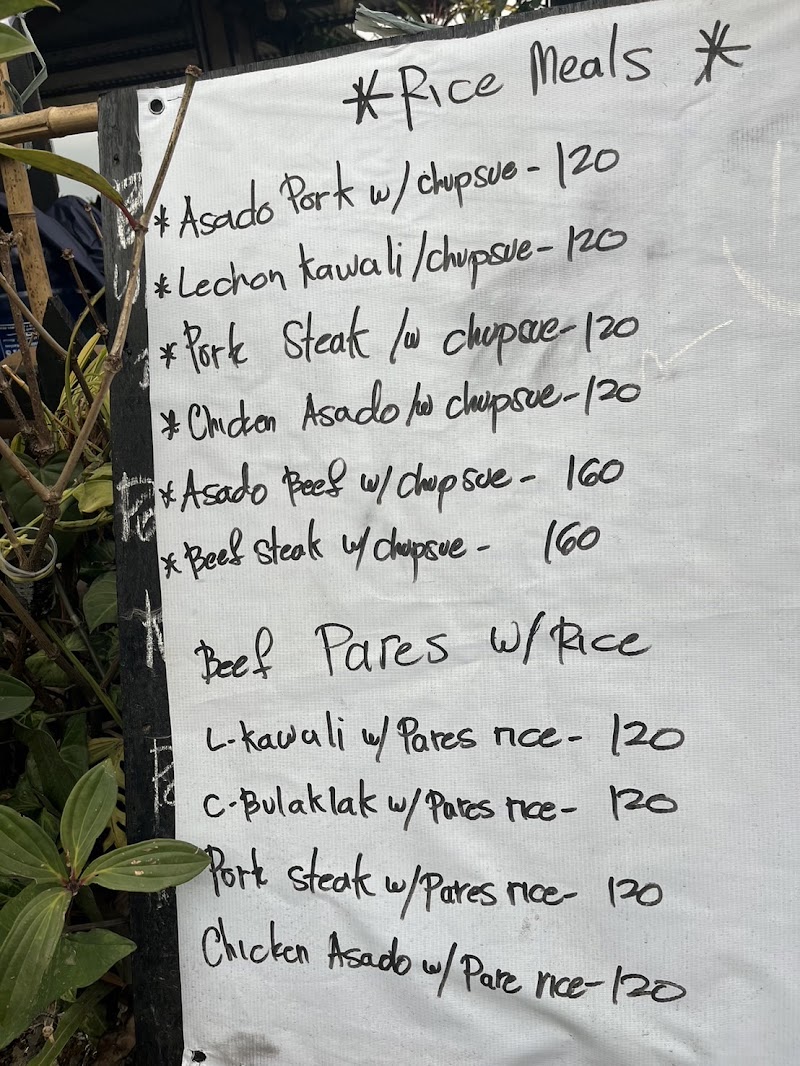 *Rice Meals *
* Asado Pork w/ chupsue - 120
* Lechon kawali /chupsue - 120
* Pork Steak /w chupsue - 120
* Chicken Asado /w chupsue - 120
* Asado Beef w/ chupsue - 160
* Beef Steak w/ chupsue - 160
Beef Pares w/ Rice
L-kawali w/ Pares rice - 120
C-Bulaklak w/ Pares rice - 120
Pork steak w/ Pares rice - 120
Chicken Asado w/ Pare rice - 120